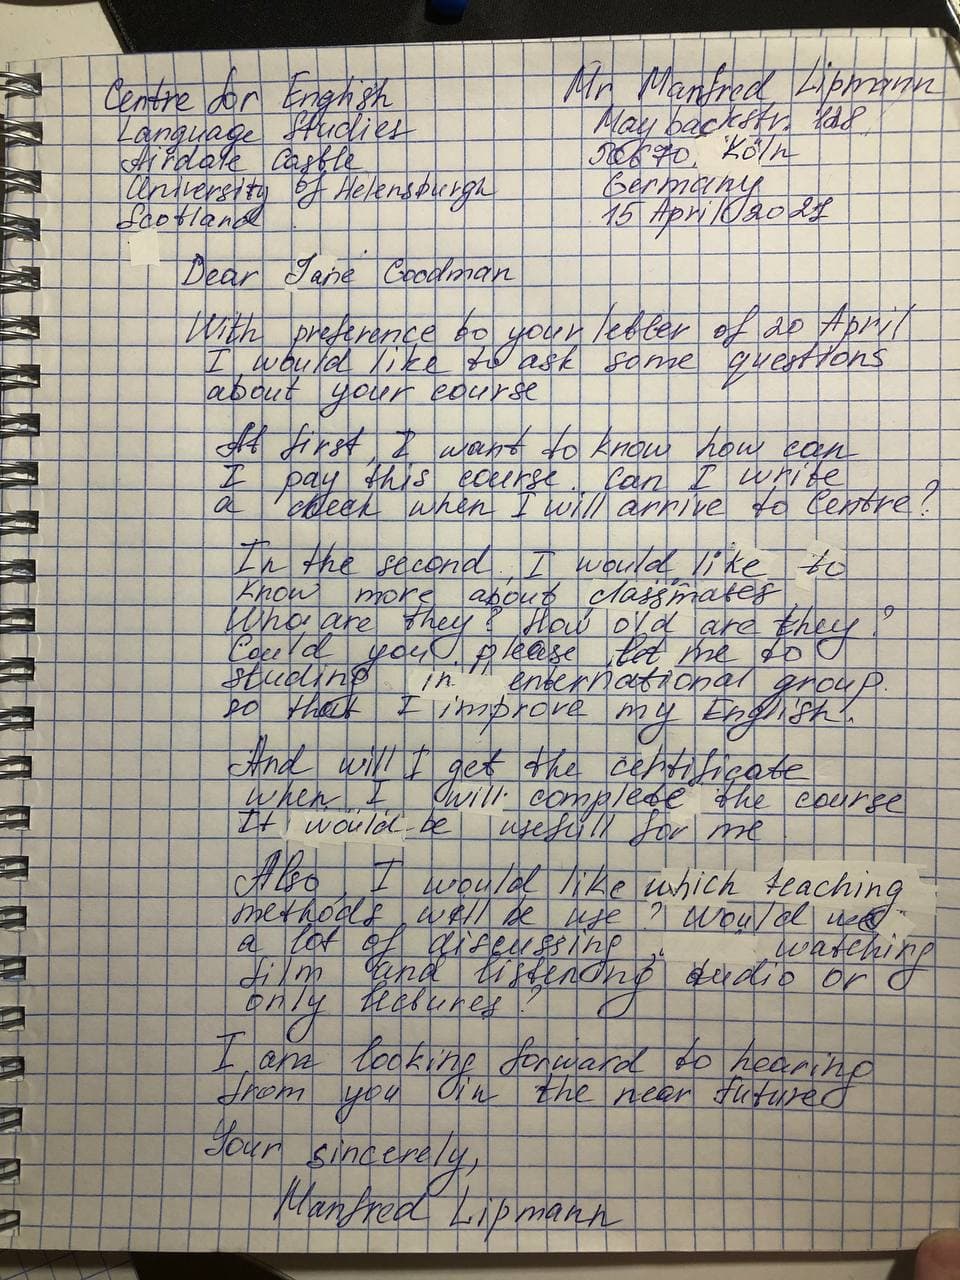 Centre for English
Language Studies
Airdale Castle
University of Helensburgh
Scotland
Mr Manfred Lipmann
Maybackstr. 128
50670. Köln
Germany
15 April 2021
Dear Jane Goodman
With preference to your letter of 20 April
I would like to ask some questions
about your course
At first, I want to know how can
I pay this course. Can I write
a check when I will arrive to Centre?
In the second, I would like to
know more about classmates
Who are they? How old are they?
Could you please let me to
studing in enternational group.
so that I improve my English.
And will I get the certificate
when I will complete the course
It would be usefull for me
Also, I would like which teaching
methods will be use? Would
a lot of discussing, watching
film and listening audio or
only lectures?
I am looking forward to hearing
from you in the near future
Your sincerely,
Manfred Lipmann